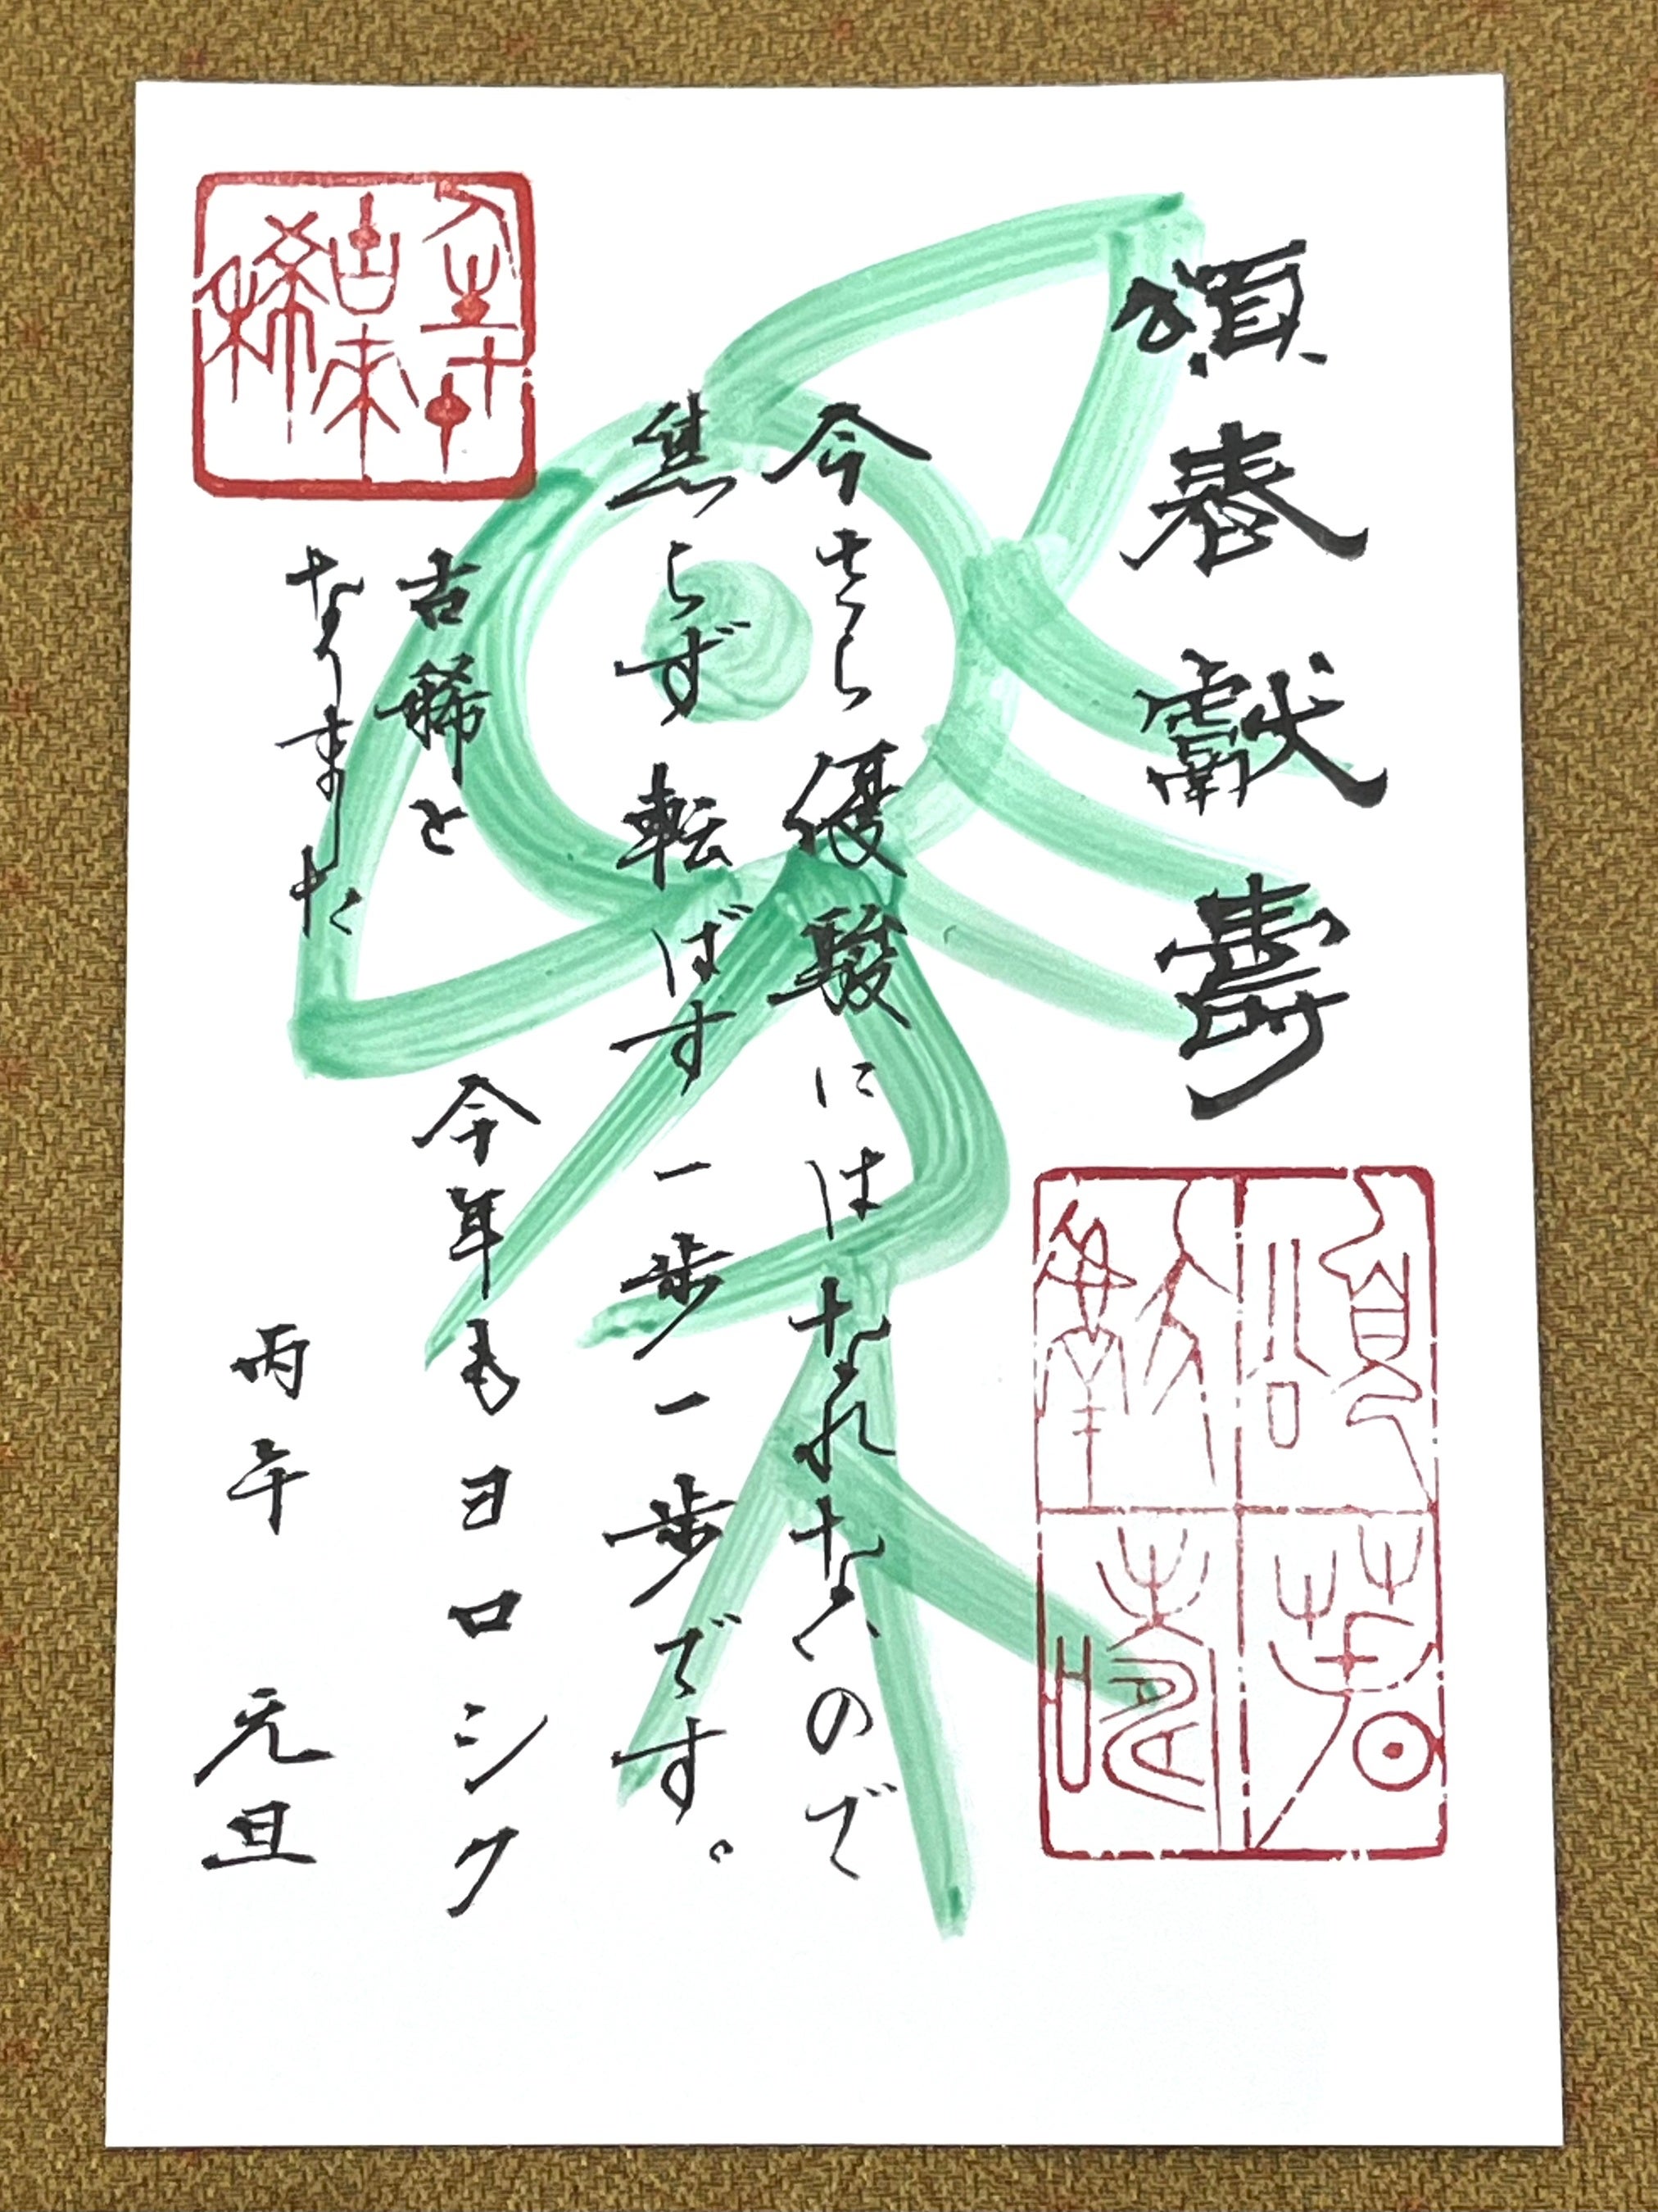 頌春献壽
今さら優駿にはなれないので
焦らず転ばす一歩一歩です。
古稀と
なりました
今年もヨロシク
丙午 元旦